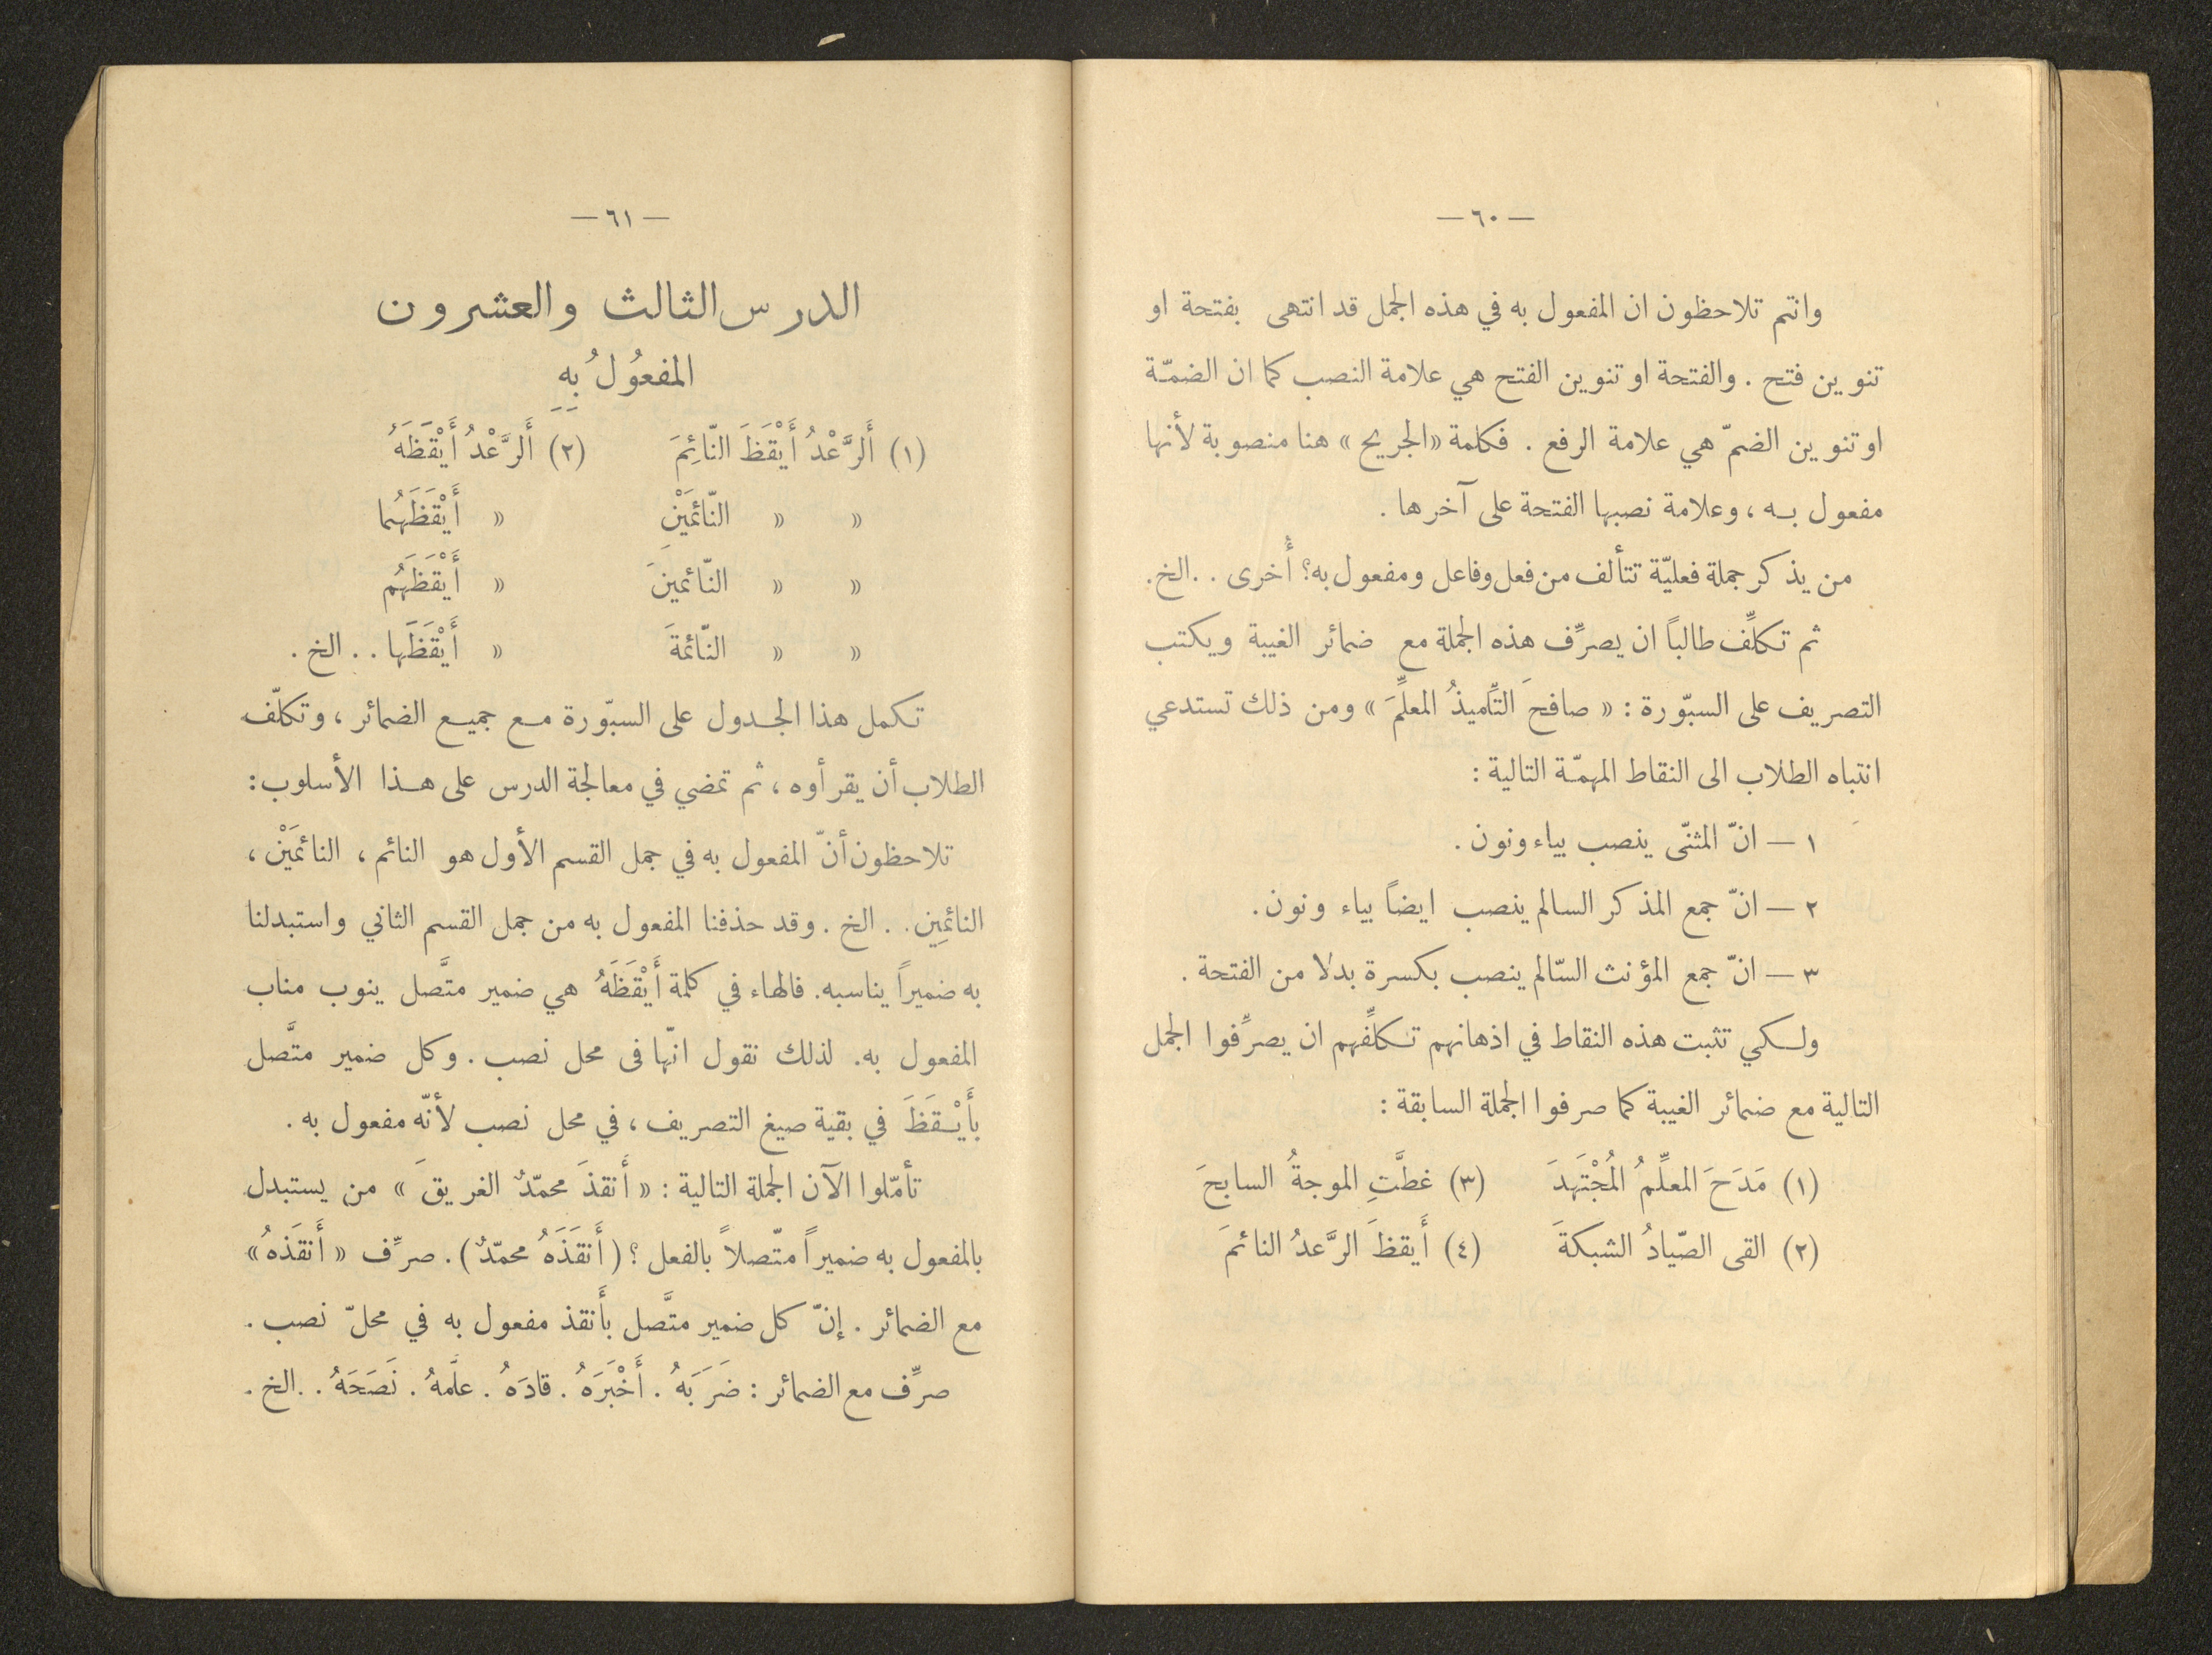 — ٦٠ —
وانتم تلاحظون ان المفعول به في هذه الجمل قد انتهى بفتحة او
تنوين فتح . والفتحة او تنوين الفتح هي علامة النصب كما ان الضمّة
او تنوين الضمّ هي علامة الرفع . فكلمة «الجريح» هنا منصوبة لأنها
مفعول به ، وعلامة نصبها الفتحة على آخرها .
من يذكر جملة فعليّة تتألف من فعل وفاعل ومفعول به؟ أُخرى . . الخ.
ثم تكلِّف طالباً ان يصرِّف هذه الجملة مع ضمائر الغيبة ويكتب
التصريف على السبّورة : « صافحَ التِّلميذُ المعلِّمَ » ومن ذلك تستدعي
انتباه الطلاب الى النقاط المهمّة التالية :
١ — انّ المثنّى ينصب بياء ونون .
٢ — انّ جمع المذكر السالم ينصب ايضاً بياء ونون .
٣ — انّ جمع المؤنث السّالم ينصب بكسرة بدلا من الفتحة .
ولكي تثبت هذه النقاط في اذهانهم تكلِّفهم ان يصرِّفوا الجمل
التالية مع ضمائر الغيبة كما صرفوا الجملة السابقة :
(١) مَدَحَ المعلِّمُ المُجْتَهِدَ (٣) غطَّتِ الموجةُ السابحَ
(٢) القى الصّيادُ الشبكةَ (٤) أَيقظَ الرَّعدُ النائمَ
— ٦١ —
الدرس الثالث والعشرون
المفعُولُ بِهِ
(١) أَلرَّعْدُ أَيْقَظَ النّائِمَ (٢) أَلرَّعْدُ أَيْقَظَهُ
« « النّائمَيْنِ « أَيْقَظَهُما
« « النّائمينَ « أَيْقَظَهُم
« « النّائمةَ « أَيْقَظَها . . الخ .
تكمل هذا الجدول على السبّورة مع جميع الضمائر ، وتكلّف
الطلاب أن يقرأوه ، ثم تمضي في معالجة الدرس على هذا الأسلوب :
تلاحظون أنّ المفعول به في جمل القسم الأول هو النائم ، النائمَيْن ،
النائمِين . . الخ . وقد حذفنا المفعول به من جمل القسم الثاني واستبدلنا
به ضميراً يناسبه. فالهاء في كلمة أَيْقَظَهُ هي ضمير متَّصل ينوب مناب
المفعول به. لذلك نقول انّها فى محل نصب . وكل ضمير متَّصل
بأَيْقَظَ في بقية صيغ التصريف ، في محل نصب لأنّه مفعول به .
تأمّلوا الآن الجملة التالية : « أَنقذَ محمّدٌ الغريقَ » من يستبدل
بالمفعول به ضميراً متّصلاً بالفعل ؟ (أَنقَذَهُ محمّدٌ) . صرِّف « أَنقَذهُ »
مع الضمائر . إنّ كل ضمير متَّصل بأَنقذ مفعول به في محلّ نصب .
صرِّف مع الضمائر : ضَرَبَهُ . أَخْبَرَهُ . قادَهُ . علَّمهُ . نَصَحَهُ . . الخ .